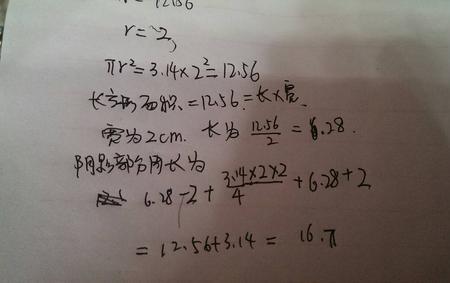 = 12.56
r = 2,
πr² = 3.14×2² = 12.56
长方形面积 = 12.56 = 长×宽.
宽为2cm. 长为 12.56/2 = 6.28.
阴影部分周长为
6.28-2+ 3.14×2×2/4 +6.28+2
= 12.56+3.14 = 16.π